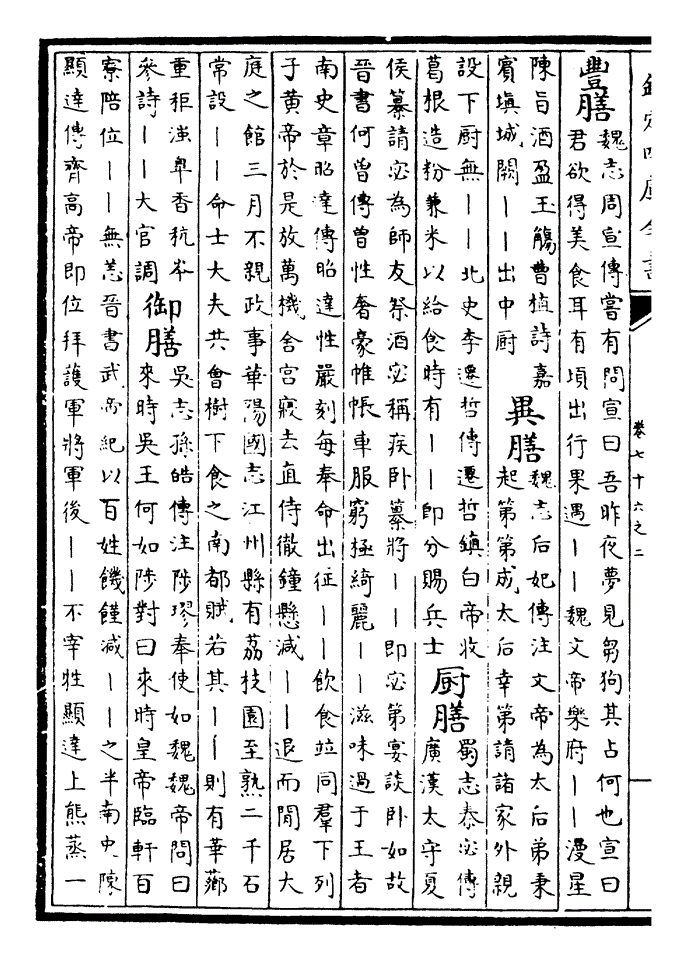 欽定四庫全書
卷七十六之二
豐膳
魏志周宣傳嘗有問宣曰吾昨夜夢見芻狗其占何也宣曰
君欲得美食耳有頃出行果遇丨丨魏文帝樂府丨丨漫星
陳旨酒盈玉觴曹植詩嘉
賓填城闕丨丨出中厨
異膳
魏志后妃傳注文帝為太后弟秉
起第第成太后幸第請諸家外親
設下厨無丨丨北史李遷哲傳遷哲鎮白帝收
葛根造粉兼米以給食時有丨丨即分賜兵士
厨膳
蜀志秦宓傳
廣漢太守夏
侯纂請宓為師友祭酒宓稱疾卧纂將丨丨即宓第宴談卧如故
晉書何曾傳曾性奢豪帷帳車服窮極綺麗丨丨滋味過于王者
南史章昭達傳昭達性嚴刻每奉命出征丨丨飲食並同羣下列
子黄帝於是放萬機舍宫寢去直侍徹鐘懸減丨丨退而閒居大
庭之館三月不親政事華陽國志江州縣有荔枝園至熟二千石
常設丨丨命士大夫共會樹下食之南都賦若其丨丨則有華薌
重秬滍臯香秔岑
參詩丨丨大官調
御膳
吳志孫皓傳注陟璆奉使如魏魏帝問曰
來時吳王何如陟對曰來時皇帝臨軒百
寮陪位丨丨無恙晉書武帝紀以百姓饑饉減丨丨之半南史陳
顯達傳齊高帝即位拜護軍將軍後丨丨不宰牲顯達上熊蒸一